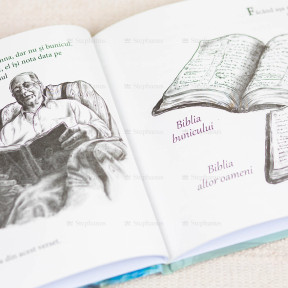 nna, dar nu și bunicul,
, el își nota data pe
ul
din acest verset.
Făcând un
Biblia
bunicului
Biblia
altor oameni